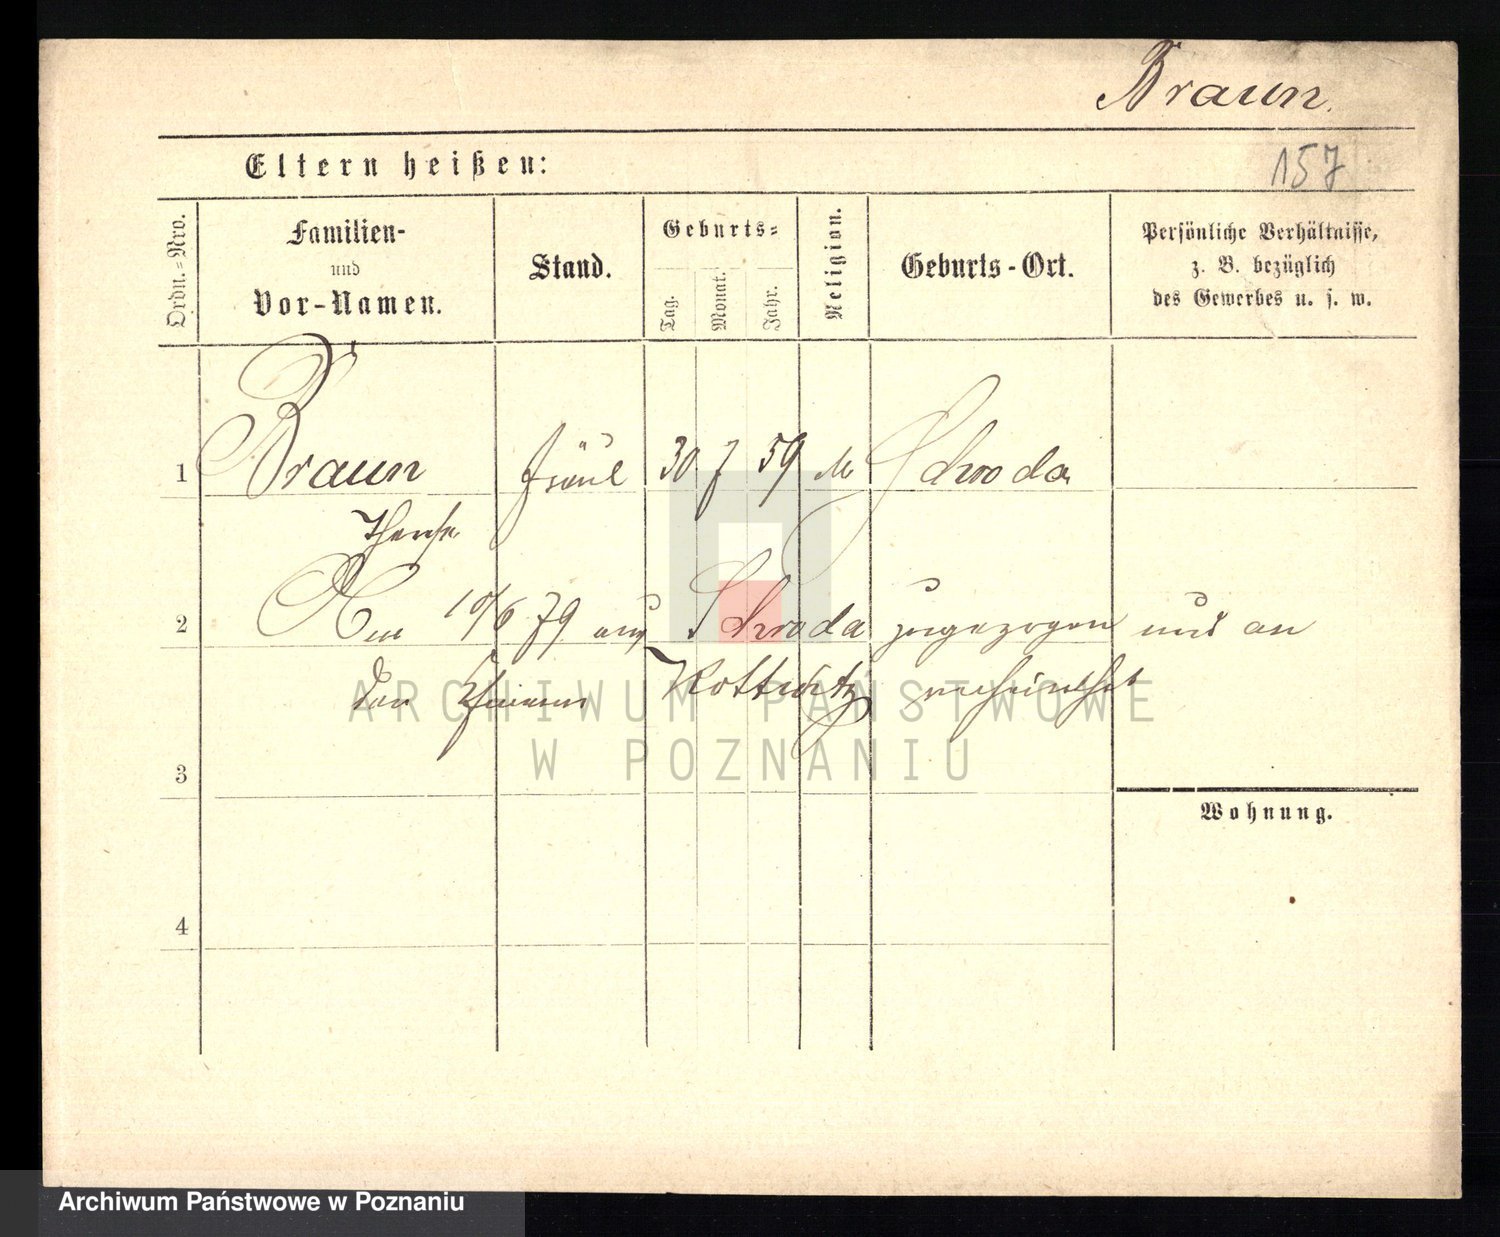 Braun.
157
Eltern heißen:
Ordn.-Nro.
Familien-
und
Vor-Namen.
Stand.
Geburts-
Tag.
Monat.
Jahr.
Religion.
Geburts-Ort.
Persönliche Verhältnisse,
z. B. bezüglich
des Gewerbes u. s. w.
1 Braun Fräul 30 7 59 Schroda
Therese
2 Am 10/6 79 aus Schroda zugezogen und an
den Kottwitz verheirathet
ARCHIWUM PAŃSTWOWE
W POZNANIU
3
Wohnung.
4
Archiwum Państwowe w Poznaniu